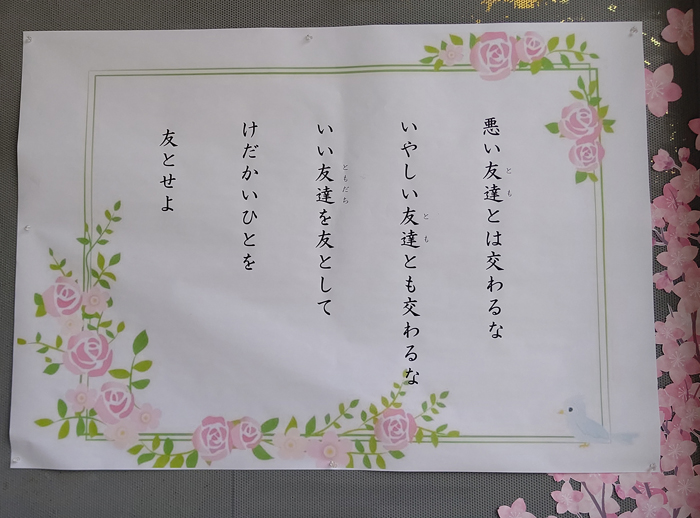 悪い友達とは交わるな
いやしい友達とも交わるな
いい友達を友として
けだかいひとを
友とせよ